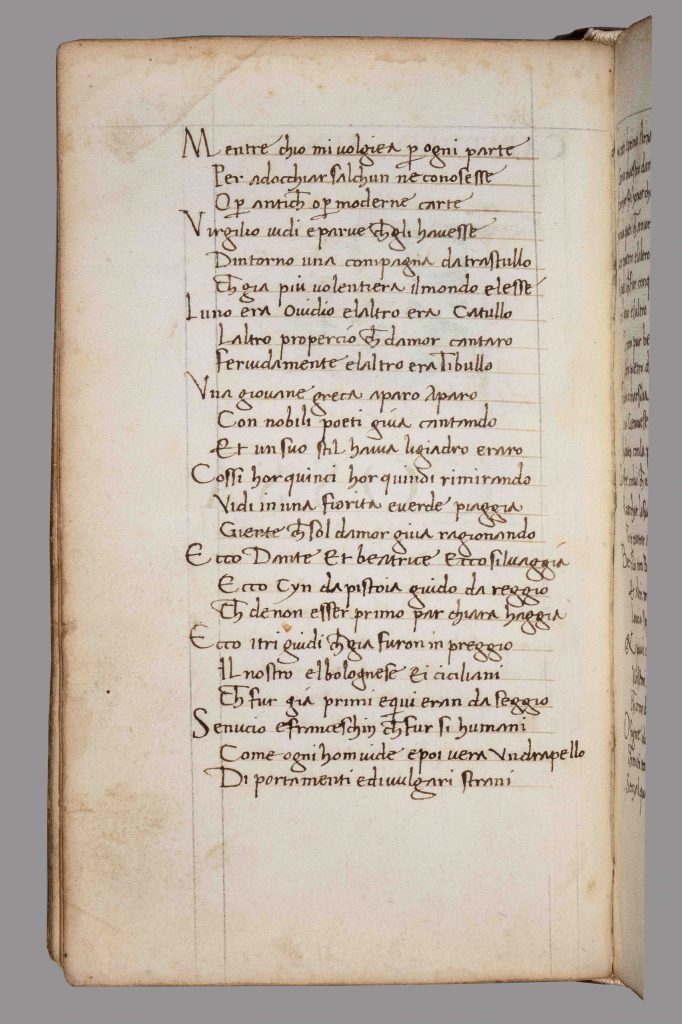 Mentre chio mi volgiea p ogni parte
Per adocchiar salchun ne conosesse
O p antich o p moderne carte
Virgilio vidi e parve ch gli havesse
Dintorno una compagna da trastullo
Ch gia piu volentiera il mondo elesse
Luno era Ovidio elaltro era Catullo
Laltro propercio ch damor cantaro
Fervidamente elaltro era Tibullo
Una giovane greca aparo Aparo
Con nobili poeti giva cantando
Et un suo stil havva ligiadro e raro
Cossi hor quinci hor quindi rimirando
Vidi in una fiorita e verde piaggia
Giente ch sol damor giva ragionando
Ecco Dante Et beatrice Ecco silvaggia
Ecco Cyn da pistoia guido da reggio
Ch de non esser primo par chiara haggia
Ecco i tri guidi ch gia furon in preggio
Il nostro el bolognese Ei ciciliani
Ch fur gia primi e qui eran da seggio
Senucio e franceschin ch fur si humani
Come ogni hom vide e poi vera Un drapello
Di portamenti e di vulgari strani